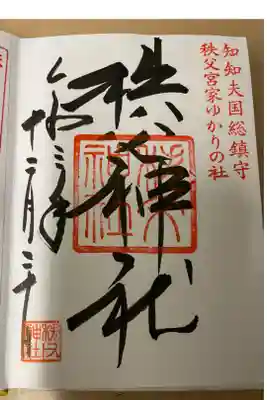 知知夫国総鎮守
秩父宮家ゆかりの社
秩父神社
令和三年
十二月二十
秩父
神社